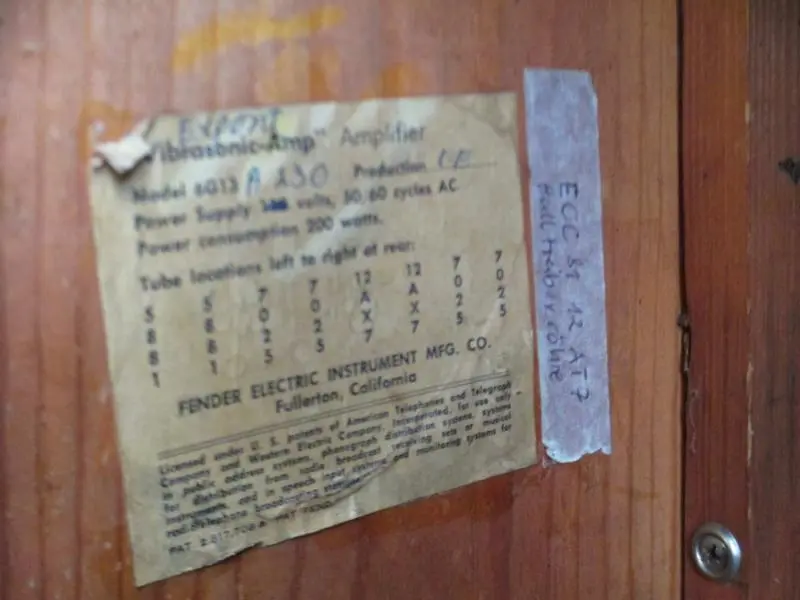 Export
Vibrasonic-Amp" Amplifier
Model 6G13 A 230 Production
Power Supply volts, 50/60 cycles AC
Power consumption 200 watts.
Tube locations left to right at rear:
5 5 7 7 12 12 7 7
8 8 0 0 A A 0 0
8 8 2 2 X X 2 2
1 1 5 5 7 7 5 5
FENDER ELECTRIC INSTRUMENT MFG. CO.
Fullerton, California
Licensed under U. S. patents of American Telephones and Telegraph
Company and Western Electric Company, Incorporated, for use only
in public address systems, phonograph distribution systems, systems
for distribution from radio broadcast receiving sets or musical
instruments, and in speech input systems and monitoring systems for
radio-telephone broadcasting
PAT 2,817,708 &
ECC 81 12 AT 7
Halltreiberröhre